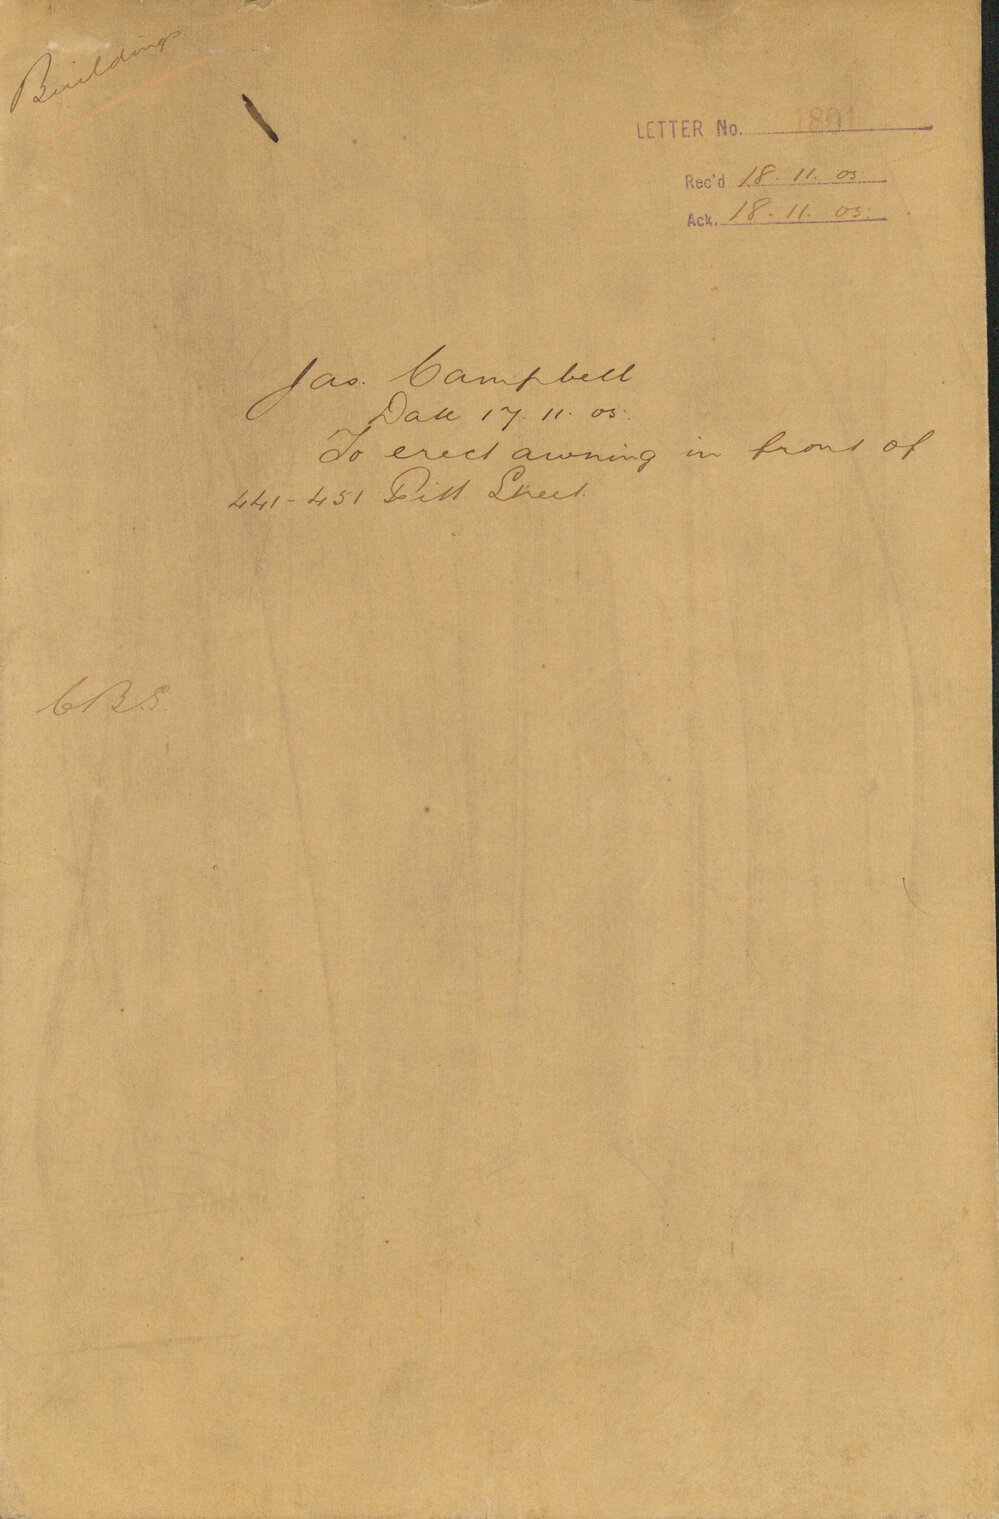 Buildings
LETTER No. 1801
Rec'd 18. 11. 05.
Ack. 18. 11. 05.
Jas. Campbell
Date 17. 11. 05.
To erect awning in front of
441-451 Pitt Street.
C.B.S.